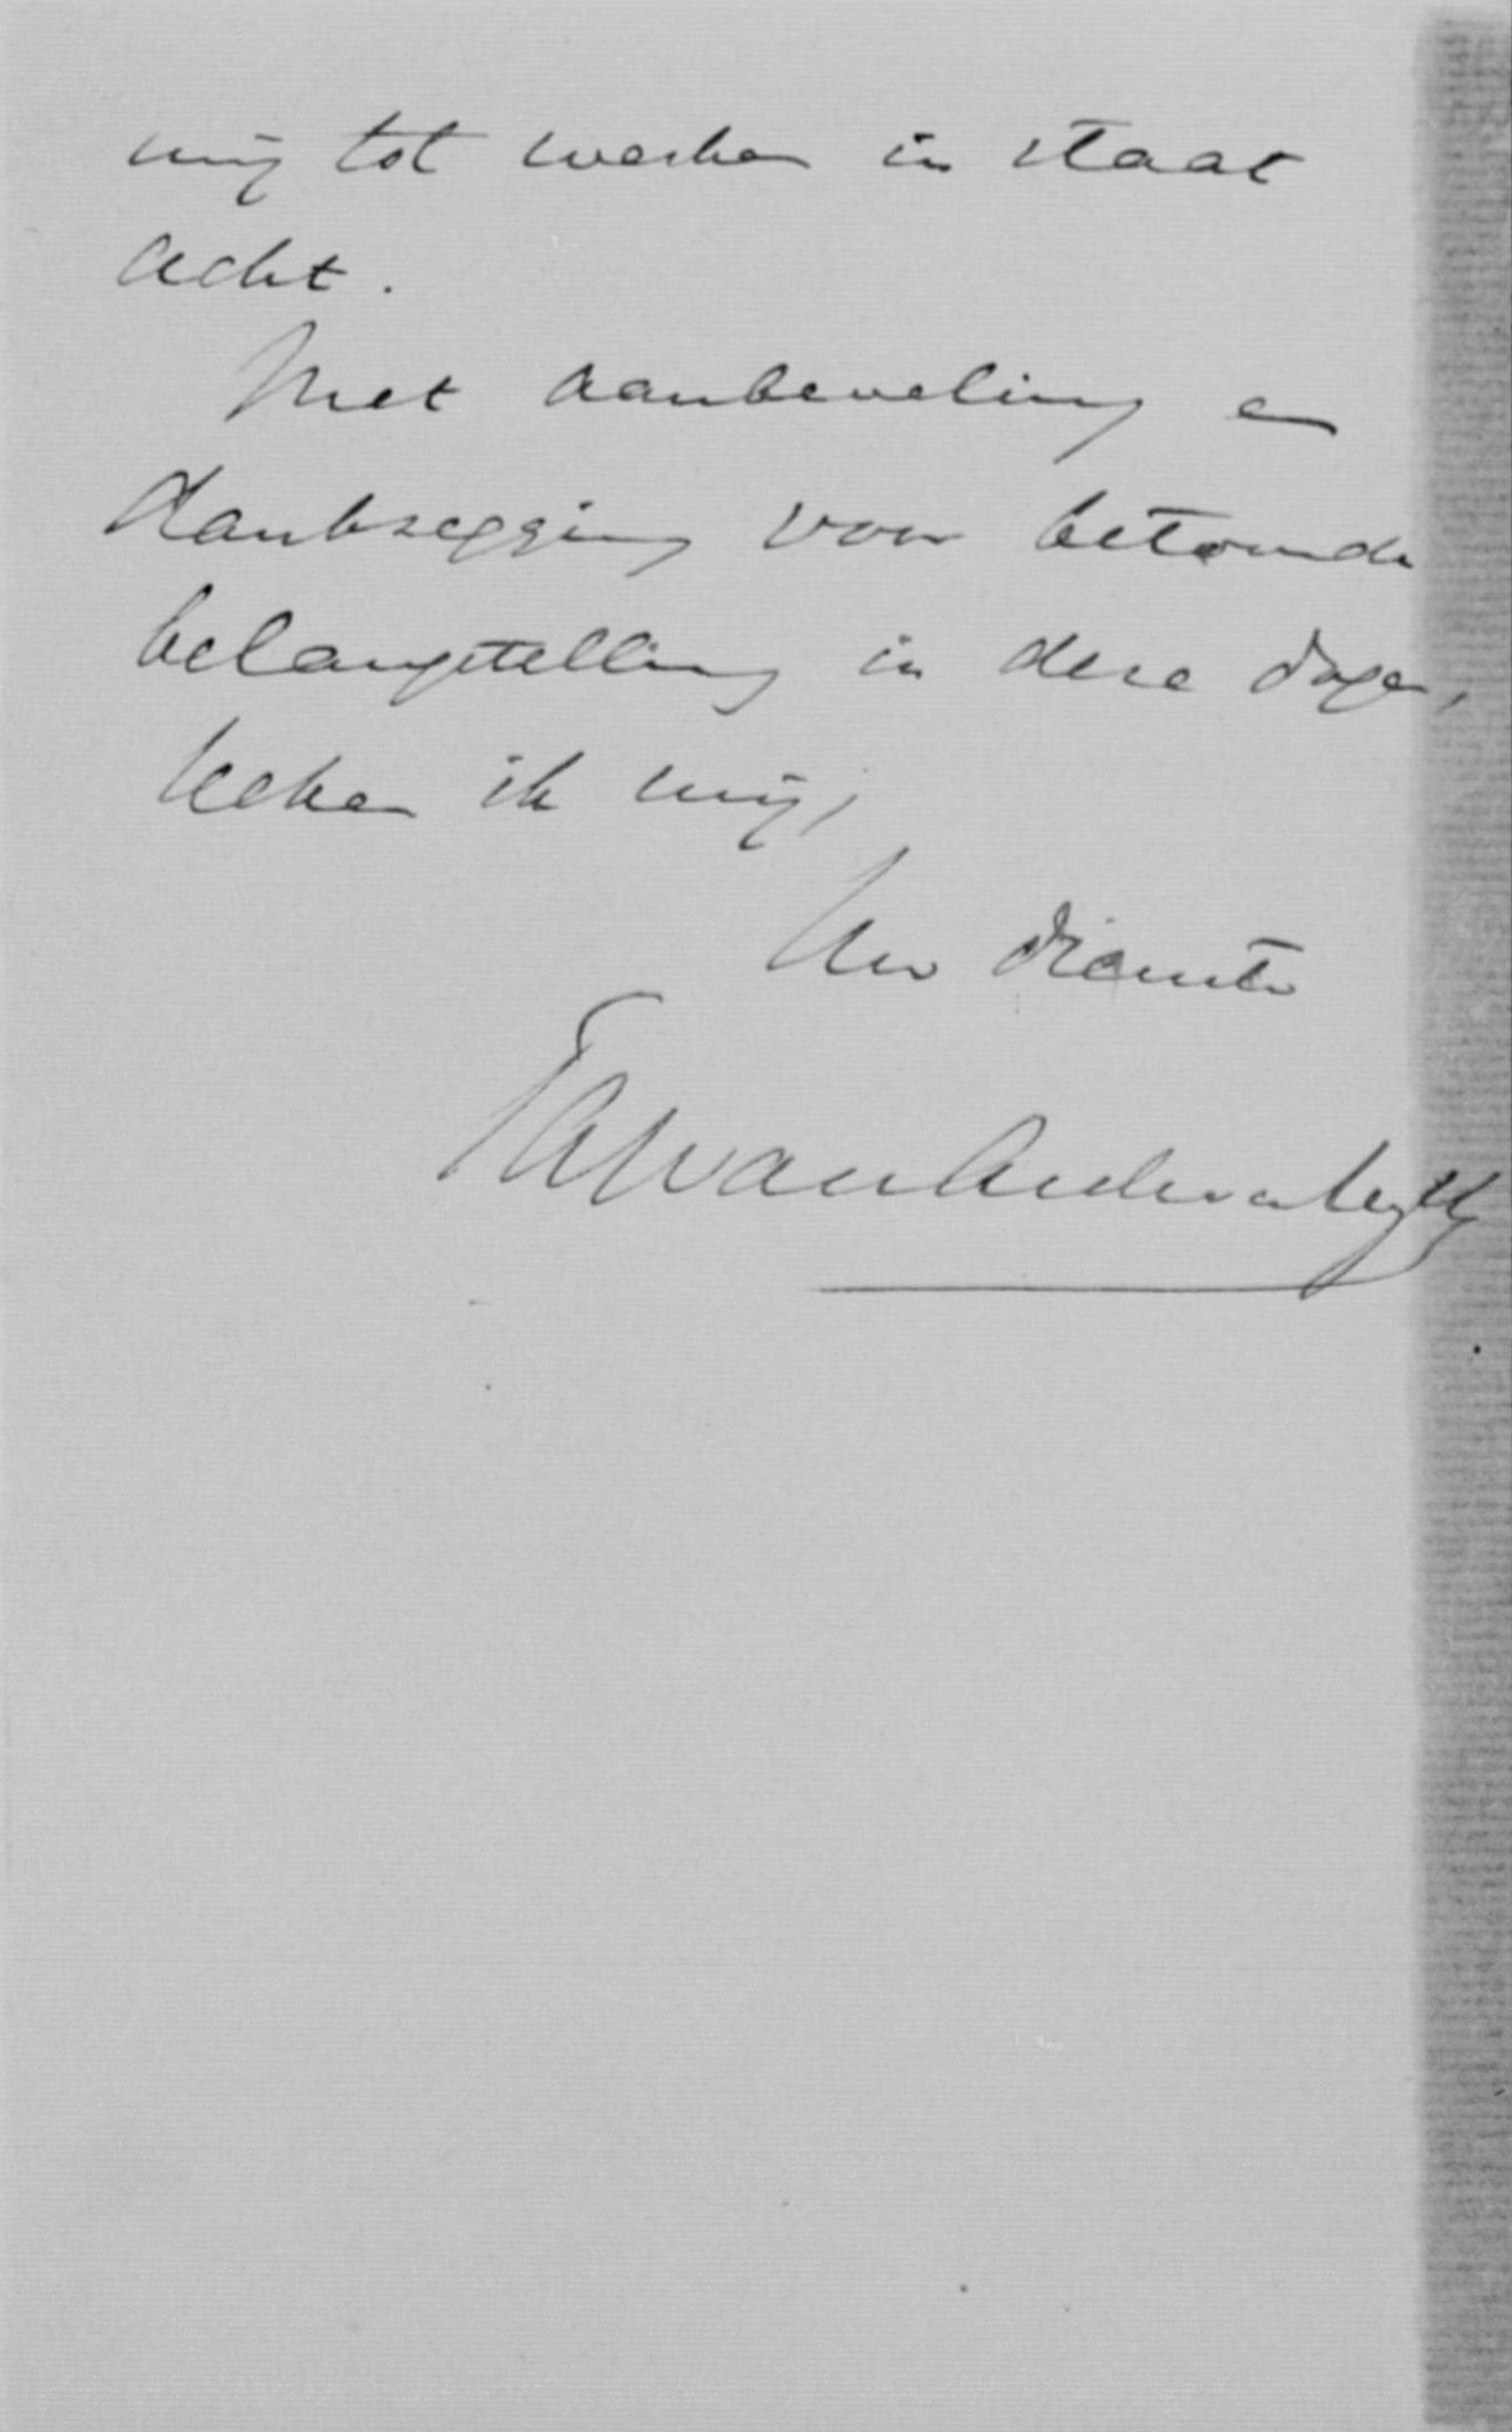 mij tot werken in staat
acht.
Met aanbeveling en
dankzegging voor betoonde
belangstelling in deze dagen,
teken ik mij,
Uw dienstv